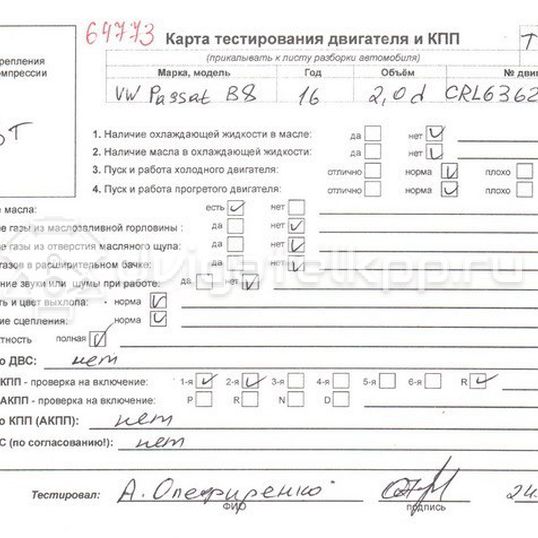 64773 Карта тестирования двигателя и КПП Т
(прикалывать к листу разборки автомобиля)
репления
омпрессии
Марка, модель Год Объём № дви
VW Passat B8 16 2,0d CRL6362
1. Наличие охлаждающей жидкости в масле: да нет
2. Наличие масла в охлаждающей жидкости: да нет
3. Пуск и работа холодного двигателя: отлично норма плохо
4. Пуск и работа прогретого двигателя: отлично норма плохо
е масла: есть нет
е газы из маслозаливной горловины : да нет
е газы из отверстия масляного щупа: да нет
газов в расширительном бачке: да нет
ние звуки или шумы при работе: да нет
ть и цвет выхлопа: норма
ние сцепления: норма
тность полная
о ДВС: нет
КПП - проверка на включение: 1-я 2-я 3-я 4-я 5-я 6-я R
АКПП - проверка на включение: P R N D
о КПП (АКПП): нет
С (по согласованию!): нет
Тестировал: А. Олефиренко 24.
ФИО подпись
vigatelkpp.ru